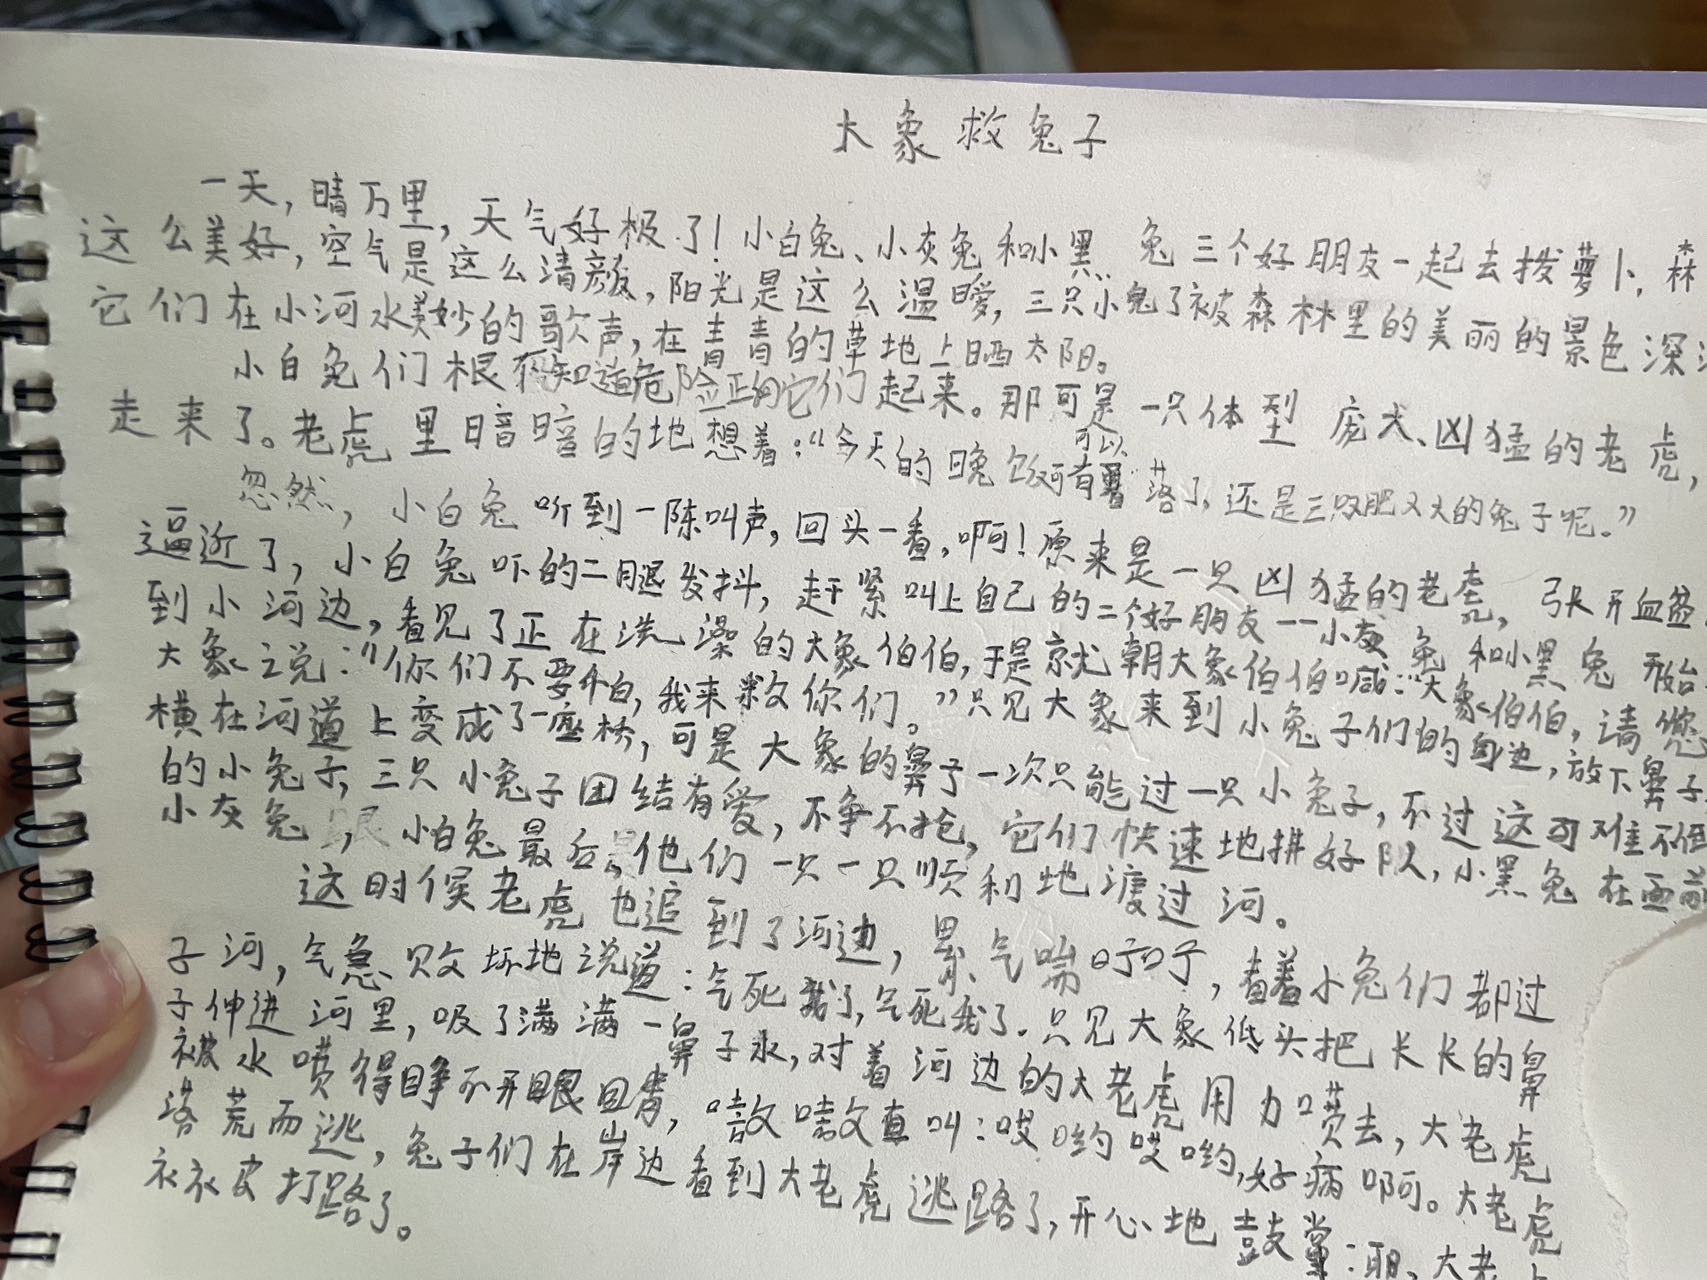 大象救兔子
一天，晴万里，天气好极了！小白兔、小灰兔和小黑兔三个好朋友一起去拨萝卜，森
这么美好，空气是这么清颜，阳光是这么温暧，三只小兔了被森林里的美丽的景色深
它们在小河水美妙的歌声，在青青的草地上晒太阳。
小白兔们根不知道危险正向它们起来。那可是一只体型庞大、凶猛的老虎，
走来了。老虎里暗暗的地想着：“今天的晚饭可以有著落了，还是三只肥又大的兔子呢。”
忽然，小白兔听到一陈叫声，回头一看，啊！原来是一只凶猛的老虎，张开血盆
逼近了，小白兔吓的二腿发抖，赶紧叫上自己的二个好朋友——小灰兔和小黑兔开始
到小河边，看见了正在洗澡的大象伯伯，于是就朝大象伯伯喊：“大象伯伯，请您
大象说：“你们不要怕，我来救你们。”只见大象来到小兔子们的身边，放下鼻子
横在河道上变成了一座桥，可是大象的鼻子一次只能过一只小兔子，不过这可难不倒
的小兔子，三只小兔子团结有爱，不争不抢，它们快速地排好队，小黑兔在面前
小灰兔，小白兔最后，他们一只一只顺利地渡过河。
这时侯老虎也追到了河边，累气喘吁吁，看着小兔们都过
子河，气急败坏地说道：气死我了，气死我了．只见大象低头把长长的鼻
子伸进河里，吸了满满一鼻子水，对着河边的大老虎用力喷去，大老虎
被水喷得睁不开眼睛，嗷嗷直叫：哎哟哎哟，好病啊。大老虎
落荒而逃，兔子们在岸边看到大老虎逃路了，开心地鼓掌：耶、大老
衣衣皮打路了。